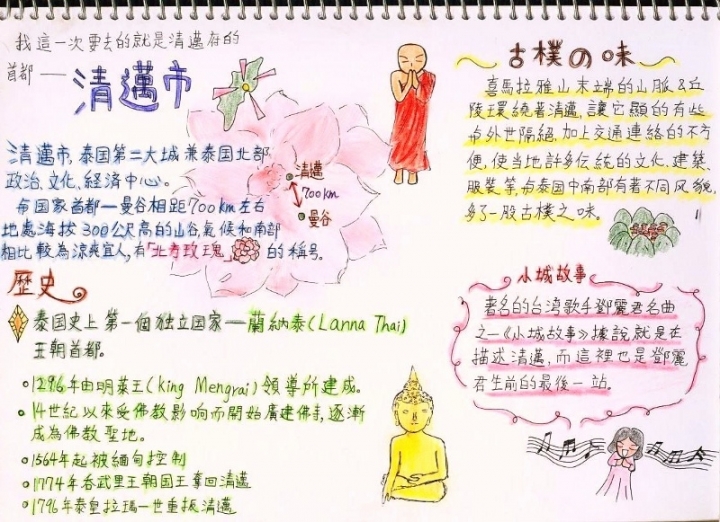 我這一次要去的就是清邁府的
首都——
清邁市
清邁市,泰国第二大城兼泰国北部
政治、文化、經濟中心。
与国家首都—曼谷相距700km左右
地處海拔300公尺高的山谷,氣候和南部
相比較為涼爽宜人,有「北方玫瑰」的稱号。
清邁
700km
曼谷
歷史
泰国史上第一個独立国家—蘭納泰(Lanna Thai)
王朝首都。
1296年由明萊王(king Mengrai)領導所建成。
14世紀以來受佛教影响而開始廣建佛寺,逐漸
成為佛教聖地。
1564年起被緬甸控制
1774年吞武里王朝国王奪回清邁
1796年泰皇拉瑪一世重振清邁
古樸の味
喜馬拉雅山末端的山脈&丘
陵環繞著清邁,讓它顯的有些
与外世隔絕,加上交通連絡的不方
便,使当地許多伝統的文化、建築、
服裝等,与泰国中南部有著不同风貌,
多了一股古樸之味。
小城故事
著名的台湾歌手鄧麗君名曲
之一《小城故事》據說就是在
描述清邁,而這裡也是鄧麗
君生前的最後一站。